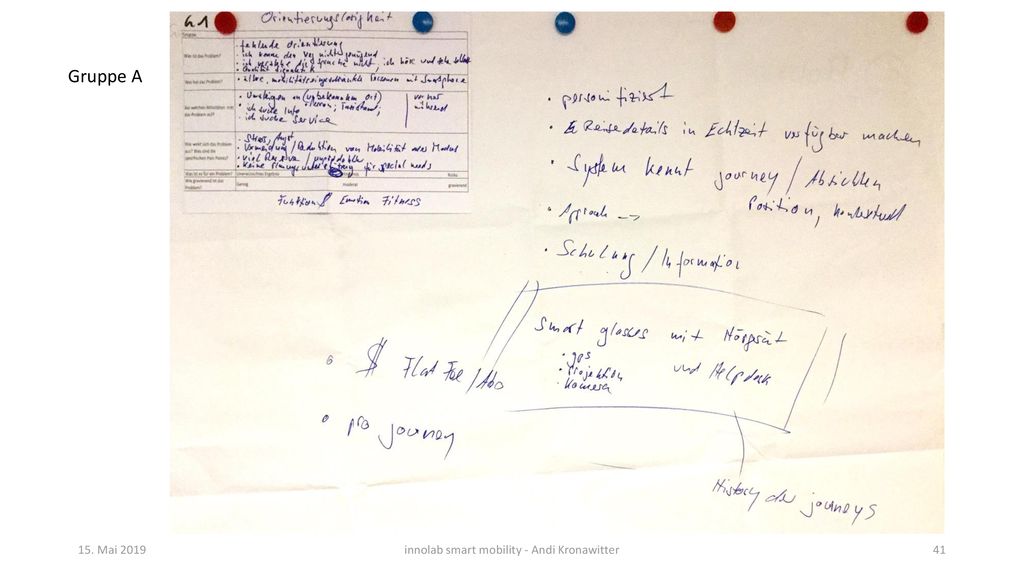 Gruppe A
G1 Orientierungslosigkeit
Was ist das Problem?
· fehlende Orientierung
· ich kenne den Weg nicht genügend
· ich verstehe die Sprache nicht, ich höre und sehe schlecht
Wer hat das Problem?
· ältere, mobilitätseingeschränkte Personen mit Smartphone
Bei welchen Aktivitäten tritt das Problem auf?
· Umsteigen an (unbekanntem Ort)
· ich suche Info
· ich suche Service
vor
während
Wie wirkt sich das Problem aus? Was sind die spezifischen Pain Points?
· Stress, Angst
· Vermeidung / Reduktion von Mobilität
· keine für special needs
Was ist es für ein Problem?
Risiko
Wie gravierend ist das Problem?
Gering moderat gravierend
Funktion $ Emotion Fitness
· personifiziert
· Reisedetails in Echtzeit verfügbar machen
· System kennt journey / Absichten
Position, kontextuell
· Schulung / Information
Smart glasses mit Hörgerät
· gps
· Projektion
· Kamera
und Helpdesk
$ Flat Fee / Abo
pro journey
History der journeys
15. Mai 2019
innolab smart mobility - Andi Kronawitter
41